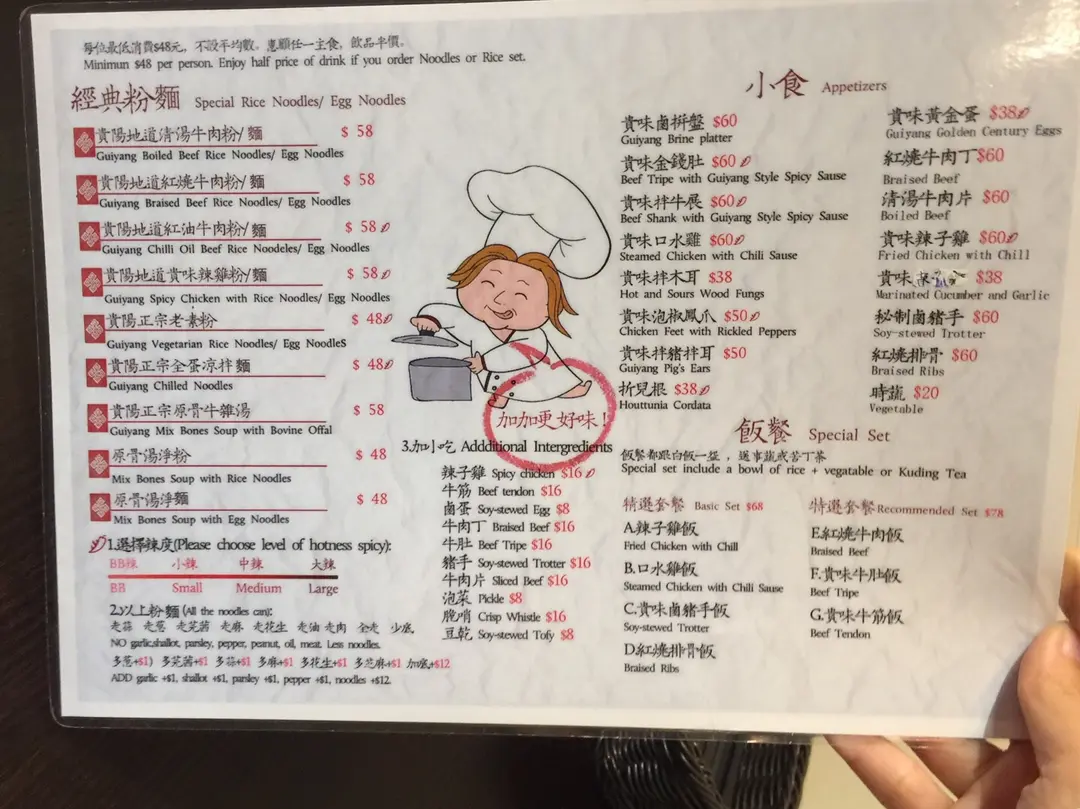 每位最低消費$48元，不設平均數。惠顧任一主食，飲品半價。
Minimun $48 per person. Enjoy half price of drink if you order Noodles or Rice set.
經典粉麵 Special Rice Noodles/ Egg Noodles
貴陽地道清湯牛肉粉/麵 $ 58
Guiyang Boiled Beef Rice Noodles/ Egg Noodles
貴陽地道紅燒牛肉粉/麵 $ 58
Guiyang Braised Beef Rice Noodles/ Egg Noodles
貴陽地道紅油牛肉粉/麵 $ 58
Guiyang Chilli Oil Beef Rice Noodeles/ Egg Noodles
貴陽地道貴味辣雞粉/麵 $ 58
Guiyang Spicy Chicken with Rice Noodles/ Egg Noodles
貴陽正宗老素粉 $ 48
Guiyang Vegetarian Rice Noodles/ Egg NoodleS
貴陽正宗全蛋凉拌麵 $ 48
Guiyang Chilled Noodles
貴陽正宗原骨牛雜湯 $ 58
Guiyang Mix Bones Soup with Bovine Offal
原骨湯淨粉 $ 48
Mix Bones Soup with Rice Noodles
原骨湯淨麵 $ 48
Mix Bones Soup with Egg Noodles
1.選擇辣度(Please choose level of hotness spicy):
BB辣 小辣 中辣 大辣
BB Small Medium Large
2.以上粉麵(All the noodles can):
走蒜 走葱 走芫茜 走麻 走花生 走油 走肉 全走 少底.
NO garlic,shallot, parsley, pepper, peanut, oil, meat. Less noodles.
多葱+$1) 多芫茜+$1 多蒜+$1 多麻+$1 多花生+$1 多芝麻+$1 加底+$12
ADD garlic +$1, shallot +$1, parsley +$1, pepper +$1, noodles +$12.
加加更好味!
3.加小吃 Addditional Intergredients
辣子雞 Spicy chicken $16
牛筋 Beef tendon $16
鹵蛋 Soy-stewed Egg $8
牛肉丁 Braised Beef $16
牛肚 Beef Tripe $16
豬手 Soy-stewed Trotter $16
牛肉片 Sliced Beef $16
泡菜 Pickle $8
脆哨 Crisp Whistle $16
豆乾 Soy-stewed Tofy $8
小食 Appetizers
貴味鹵拼盤 $60
Guiyang Brine platter
貴味金錢肚 $60
Beef Tripe with Guiyang Style Spicy Sause
貴味拌牛展 $60
Beef Shank with Guiyang Style Spicy Sause
貴味口水雞 $60
Steamed Chicken with Chili Sause
貴味拌木耳 $38
Hot and Sours Wood Fungs
貴味泡椒鳳爪 $50
Chicken Feet with Rickled Peppers
貴味拌豬拌耳 $50
Guiyang Pig's Ears
折兒根 $38
Houttunia Cordata
貴味黃金蛋 $38
Guiyang Golden Century Eggs
紅燒牛肉丁 $60
Braised Beef
清湯牛肉片 $60
Boiled Beef
貴味辣子雞 $60
Fried Chicken with Chill
貴味 $38
Marinated Cucumber and Garlic
秘制鹵豬手 $60
Soy-stewed Trotter
紅燒排骨 $60
Braised Ribs
時蔬 $20
Vegetable
飯餐 Special Set
飯餐都跟白飯一盌，選事蔬或苦丁茶
Special set include a bowl of rice + vegatable or Kuding Tea
精選套餐 Basic Set $68
A.辣子雞飯
Fried Chicken with Chill
B.口水雞飯
Steamed Chicken with Chili Sause
C.貴味鹵豬手飯
Soy-stewed Trotter
D.紅燒排骨飯
Braised Ribs
特選套餐 Recommended Set $78
E.紅燒牛肉飯
Braised Beef
F.貴味牛肚飯
Beef Tripe
G.貴味牛筋飯
Beef Tendon